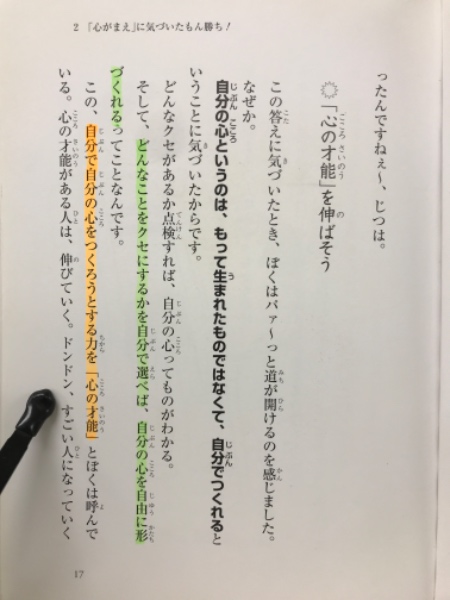 2 「心がまえ」に気づいたもん勝ち！
ったんですねぇ〜、じつは。
「心の才能」を伸ばそう
この答えに気づいたとき、ぼくはバァ〜っと道が開けるのを感じました。
なぜか。
自分の心というのは、もって生まれたものではなくて、自分でつくれると
いうことに気づいたからです。
どんなクセがあるか点検すれば、自分の心ってものがわかる。
そして、どんなことをクセにするかを自分で選べば、自分の心を自由に形
づくれるってことなんです。
この、自分で自分の心をつくろうとする力を「心の才能」とぼくは呼んで
いる。心の才能がある人は、伸びていく。ドンドン、すごい人になっていく
17